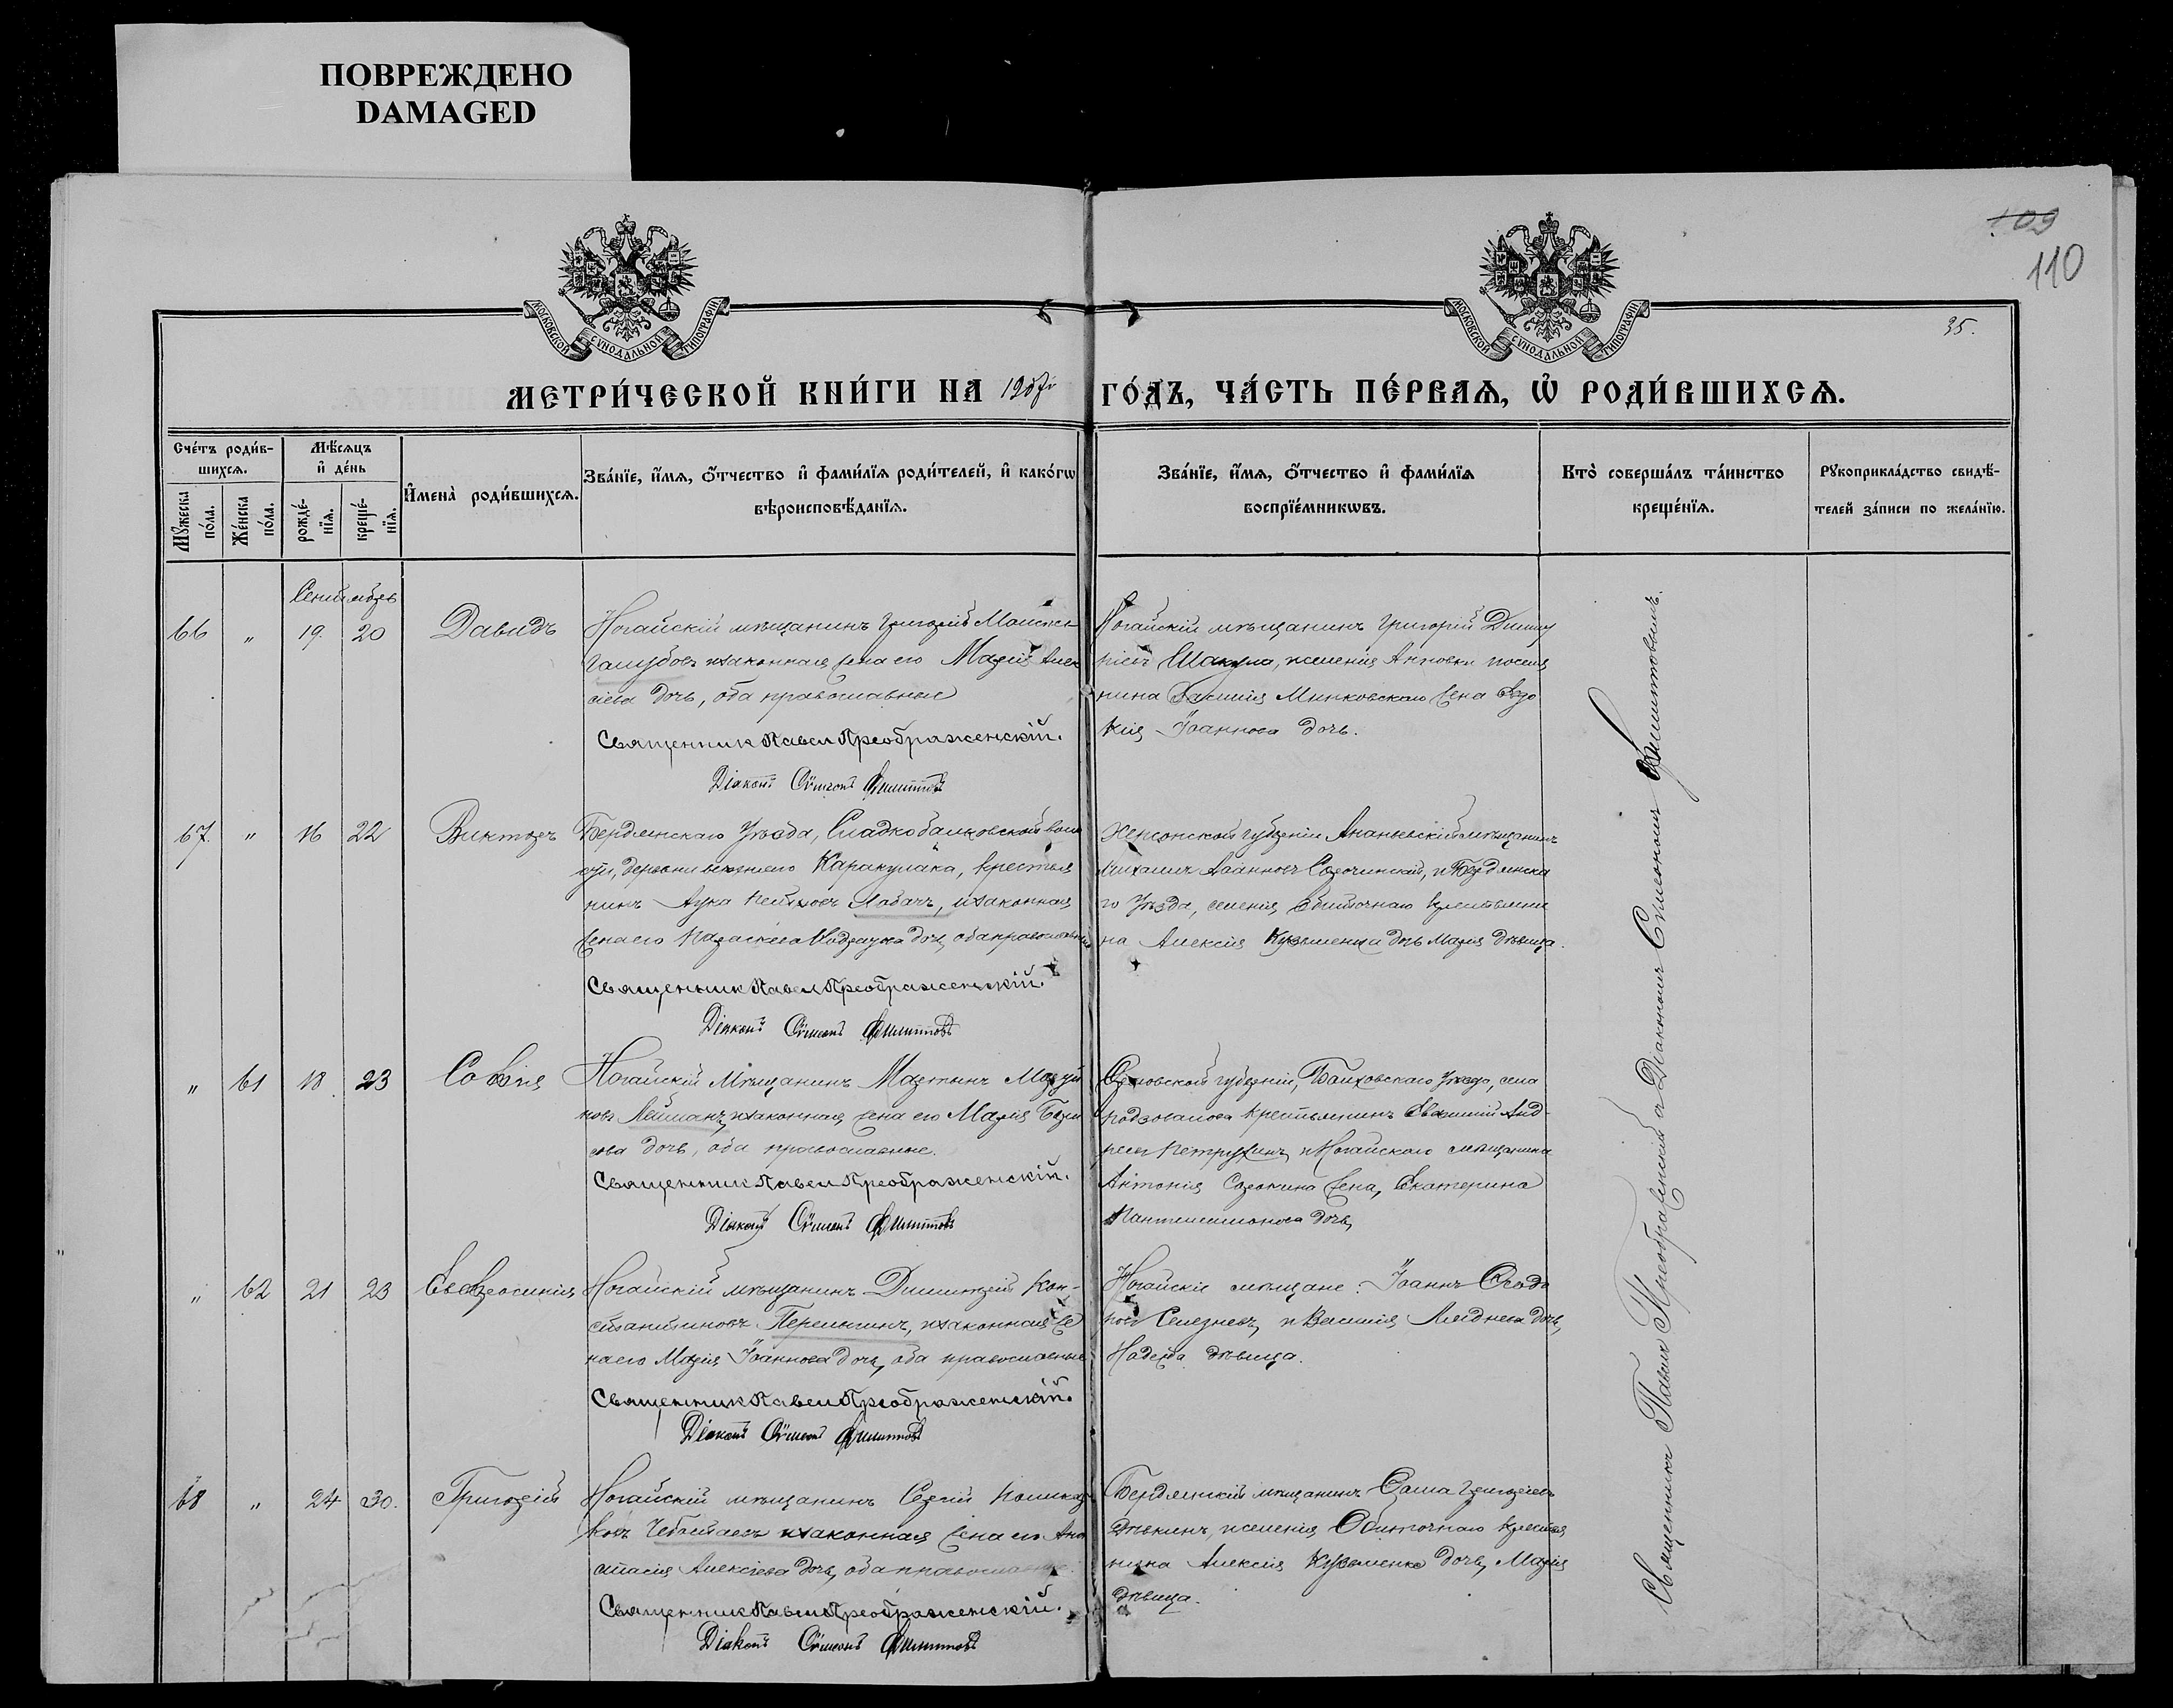 ПОВРЕЖДЕНО
DAMAGED
109
110
35.
МОСКОВСКОЙ СѴНОДАЛЬНОЙ ТИПОГРАФІИ
МОСКОВСКОЙ СѴНОДАЛЬНОЙ ТИПОГРАФІИ
МЕТРИ́ЧЕСКОЙ КНИ́ГИ НА 1907й ГО́ДЪ, ЧА́СТЬ ПЕ́РВАѦ, Ѡ РОДИ́ВШИХСѦ.
Сче́тъ роди́в-
шихсѧ.
Мꙋжеска по́ла.
Же́нска по́ла.
Мѣ́сѧцъ
и҆ де́нь
рожде́-
нїѧ.
креще́-
нїѧ.
И҆мена̀ роди́вшихсѧ.
Зва́нїе, и҆́мѧ, ѻ҆́тчество и҆ фами́лїѧ роди́телей, и҆ како́гѡ
вѣроисповѣ́данїѧ.
Зва́нїе, и҆́мѧ, ѻ҆́тчество и҆ фами́лїѧ
воспрїе́мникѡвъ.
Кто̀ соверша́лъ та́инство
креще́нїѧ.
Рꙋкоприкла́дство свидѣ́-
телей за́писи по жела́нїю.
Сентябрь
66 " 19. 20 Давидъ
Ногайскій мѣщанинъ Григорій Моисеевъ
Голубовъ и законная жена его Марія Алек
сіева дочь, оба православные
Священник Павел Преображенскій.
Діаконъ Сѵмеонъ Филиттовъ
Ногайскій мѣщанинъ Григорій Димит
ріевъ Шакула, и селенія Анновки поселя
нина Василія Минковскаго жена Евдо
кія Іоаннова дочь.
67. " 16 22 Викторъ
Бердянскаго Уѣзда, Сладкобалковской воло
сти, деревни верхняго Каракулака, крестья
нинъ Лука Лабачъ, и законная
жена его Параскева дочь, оба православные
Священник Павел Преображенскій.
Діаконъ Сѵмеонъ Филиттовъ
Херсонской губерніи Ананьевскій мѣщанинъ
Михаилъ Іоанновъ Сорочинскій, и Бердянска
го Уѣзда, селенія Обиточнаго крестьяни
на Алексія Кузьменка дочь Марія дѣвица.
" 61 18 23 Софія
Ногайскій Мѣщанинъ Мартынъ Марты
новъ Нейманъ, и законная жена его Марія Бори
сова дочь, оба православные.
Священник Павел Преображенскій.
Діаконъ Сѵмеонъ Филиттовъ
Орловской губерніи, Болховскаго Уезда, села
крестьянинъ Евфимій Анд-
реевъ Петрухинъ, и Ногайскаго мѣщанина
Антонія Сорокина жена, Екатерина
Пантелеимонова дочь,
" 62 21 23 Евфросинія
Ногайскій мѣщанинъ Димитрій Кон-
стантиновъ Перелыгинъ, и законная же
на его Марія Іоаннова дочь, оба православные
Священник Павел Преображенскій.
Діаконъ Сѵмеонъ Филиттовъ
Ногайскіе мѣщане: Іоаннъ Ѳеодо
ровъ Селезневъ, и Василія Леднева дочь,
Надежда дѣвица.
68 " 24 30. Григорій
Ногайскій мѣщанинъ Сергій Поликар
повъ Чеботаевъ и законная жена его Ана
стасія Алексіева дочь, оба православные.
Священник Павел Преображенскій.
Діаконъ Сѵмеонъ Филиттовъ
Бердянскій мѣщанинъ Ѳома Григоріевъ
Дѣвкинъ, и селенія Обиточнаго крестья
нина Алексія Кузьменко дочь, Марія
дѣвица.
Священникъ Павелъ Преображенскій съ Діакономъ Симеономъ Филиттовымъ.